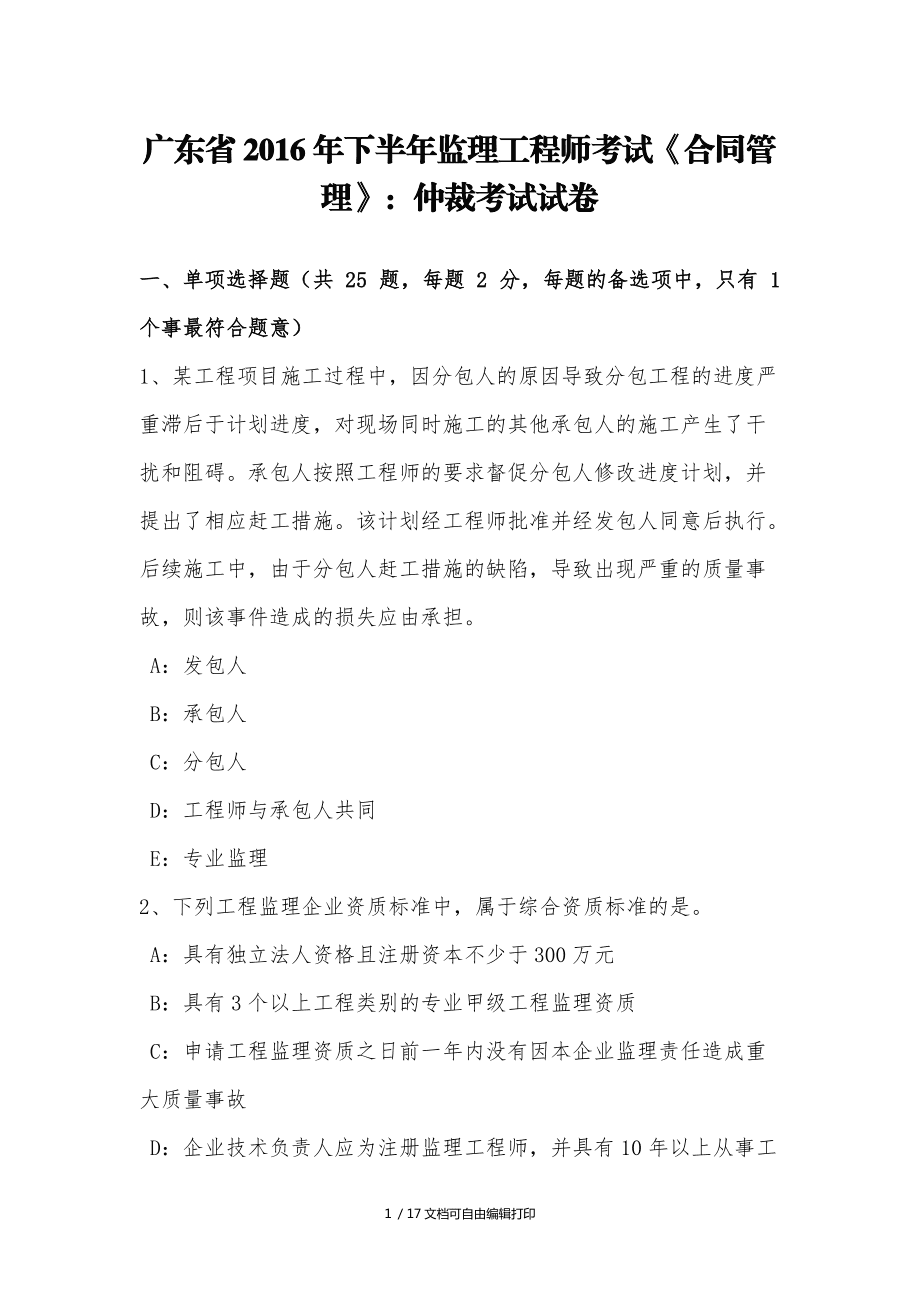 广东省 2016 年下半年监理工程师考试《合同管
理》：仲裁考试试卷
一、单项选择题（共 25 题，每题 2 分，每题的备选项中，只有 1
个事最符合题意）
1、某工程项目施工过程中，因分包人的原因导致分包工程的进度严
重滞后于计划进度，对现场同时施工的其他承包人的施工产生了干
扰和阻碍。承包人按照工程师的要求督促分包人修改进度计划，并
提出了相应赶工措施。该计划经工程师批准并经发包人同意后执行。
后续施工中，由于分包人赶工措施的缺陷，导致出现严重的质量事
故，则该事件造成的损失应由承担。
A：发包人
B：承包人
C：分包人
D：工程师与承包人共同
E：专业监理
2、下列工程监理企业资质标准中，属于综合资质标准的是。
A：具有独立法人资格且注册资本不少于 300 万元
B：具有 3 个以上工程类别的专业甲级工程监理资质
C：申请工程监理资质之日前一年内没有因本企业监理责任造成重
大质量事故
D：企业技术负责人应为注册监理工程师，并具有 10 年以上从事工
1 / 17 文档可自由编辑打印